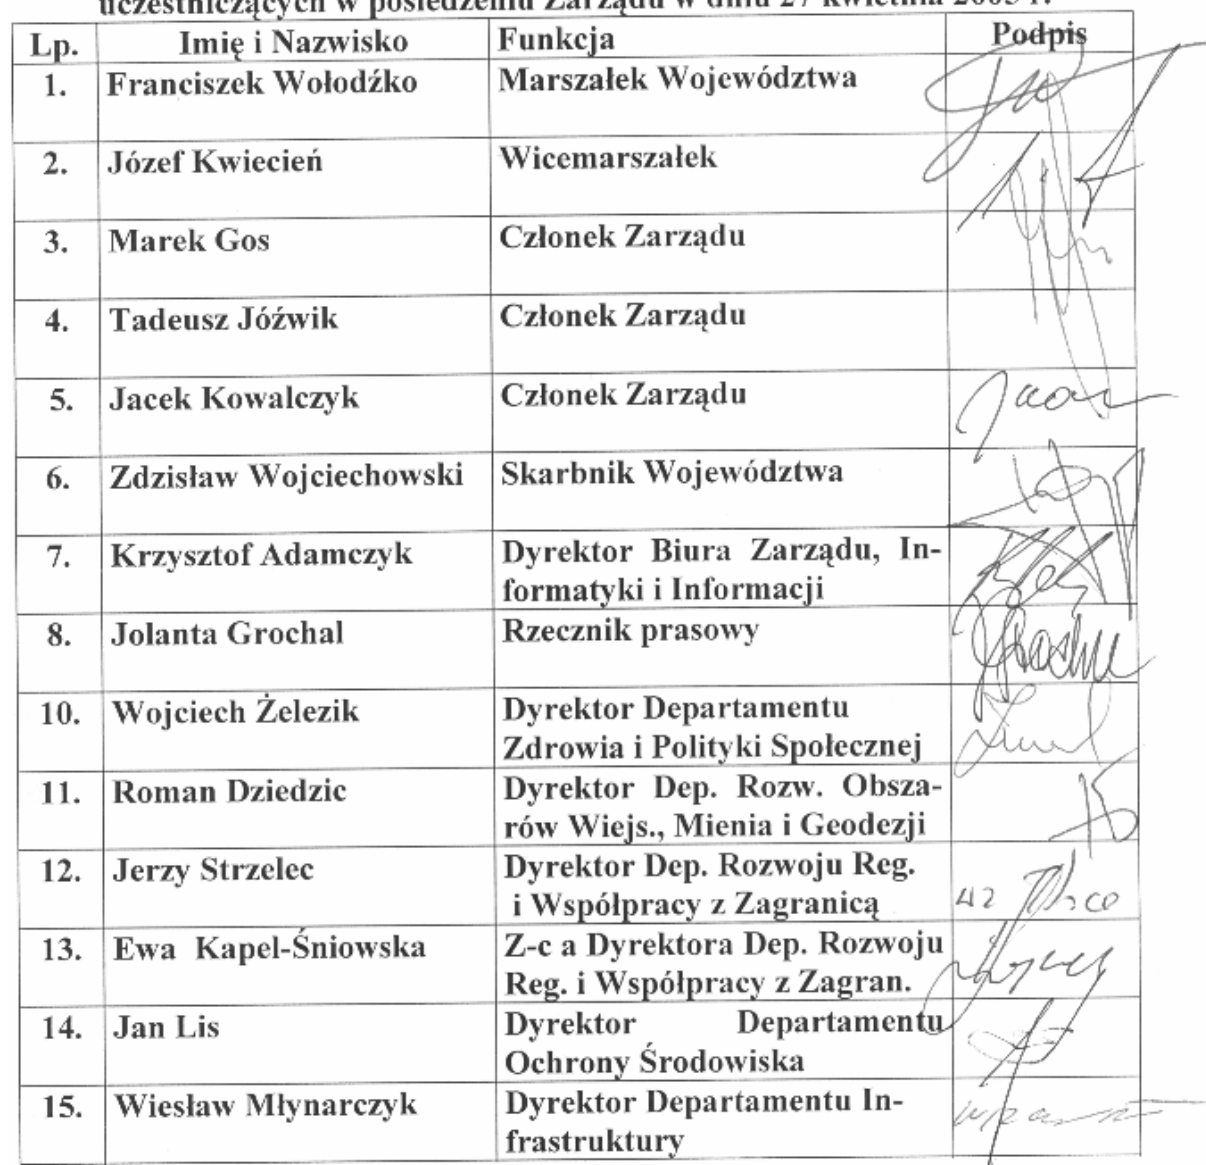 uczestniczących w posiedzeniu Zarządu w dniu 27 kwietnia 2005 r.
Lp. Imię i Nazwisko Funkcja Podpis
1. Franciszek Wołodźko Marszałek Województwa
2. Józef Kwiecień Wicemarszałek
3. Marek Gos Członek Zarządu
4. Tadeusz Jóźwik Członek Zarządu
5. Jacek Kowalczyk Członek Zarządu
6. Zdzisław Wojciechowski Skarbnik Województwa
7. Krzysztof Adamczyk Dyrektor Biura Zarządu, In-
formatyki i Informacji
8. Jolanta Grochal Rzecznik prasowy
10. Wojciech Żelezik Dyrektor Departamentu
Zdrowia i Polityki Społecznej
11. Roman Dziedzic Dyrektor Dep. Rozw. Obsza-
rów Wiejs., Mienia i Geodezji
12. Jerzy Strzelec Dyrektor Dep. Rozwoju Reg.
i Współpracy z Zagranicą
13. Ewa Kapel-Śniowska Z-c a Dyrektora Dep. Rozwoju
Reg. i Współpracy z Zagran.
14. Jan Lis Dyrektor Departamentu
Ochrony Środowiska
15. Wiesław Młynarczyk Dyrektor Departamentu In-
frastruktury